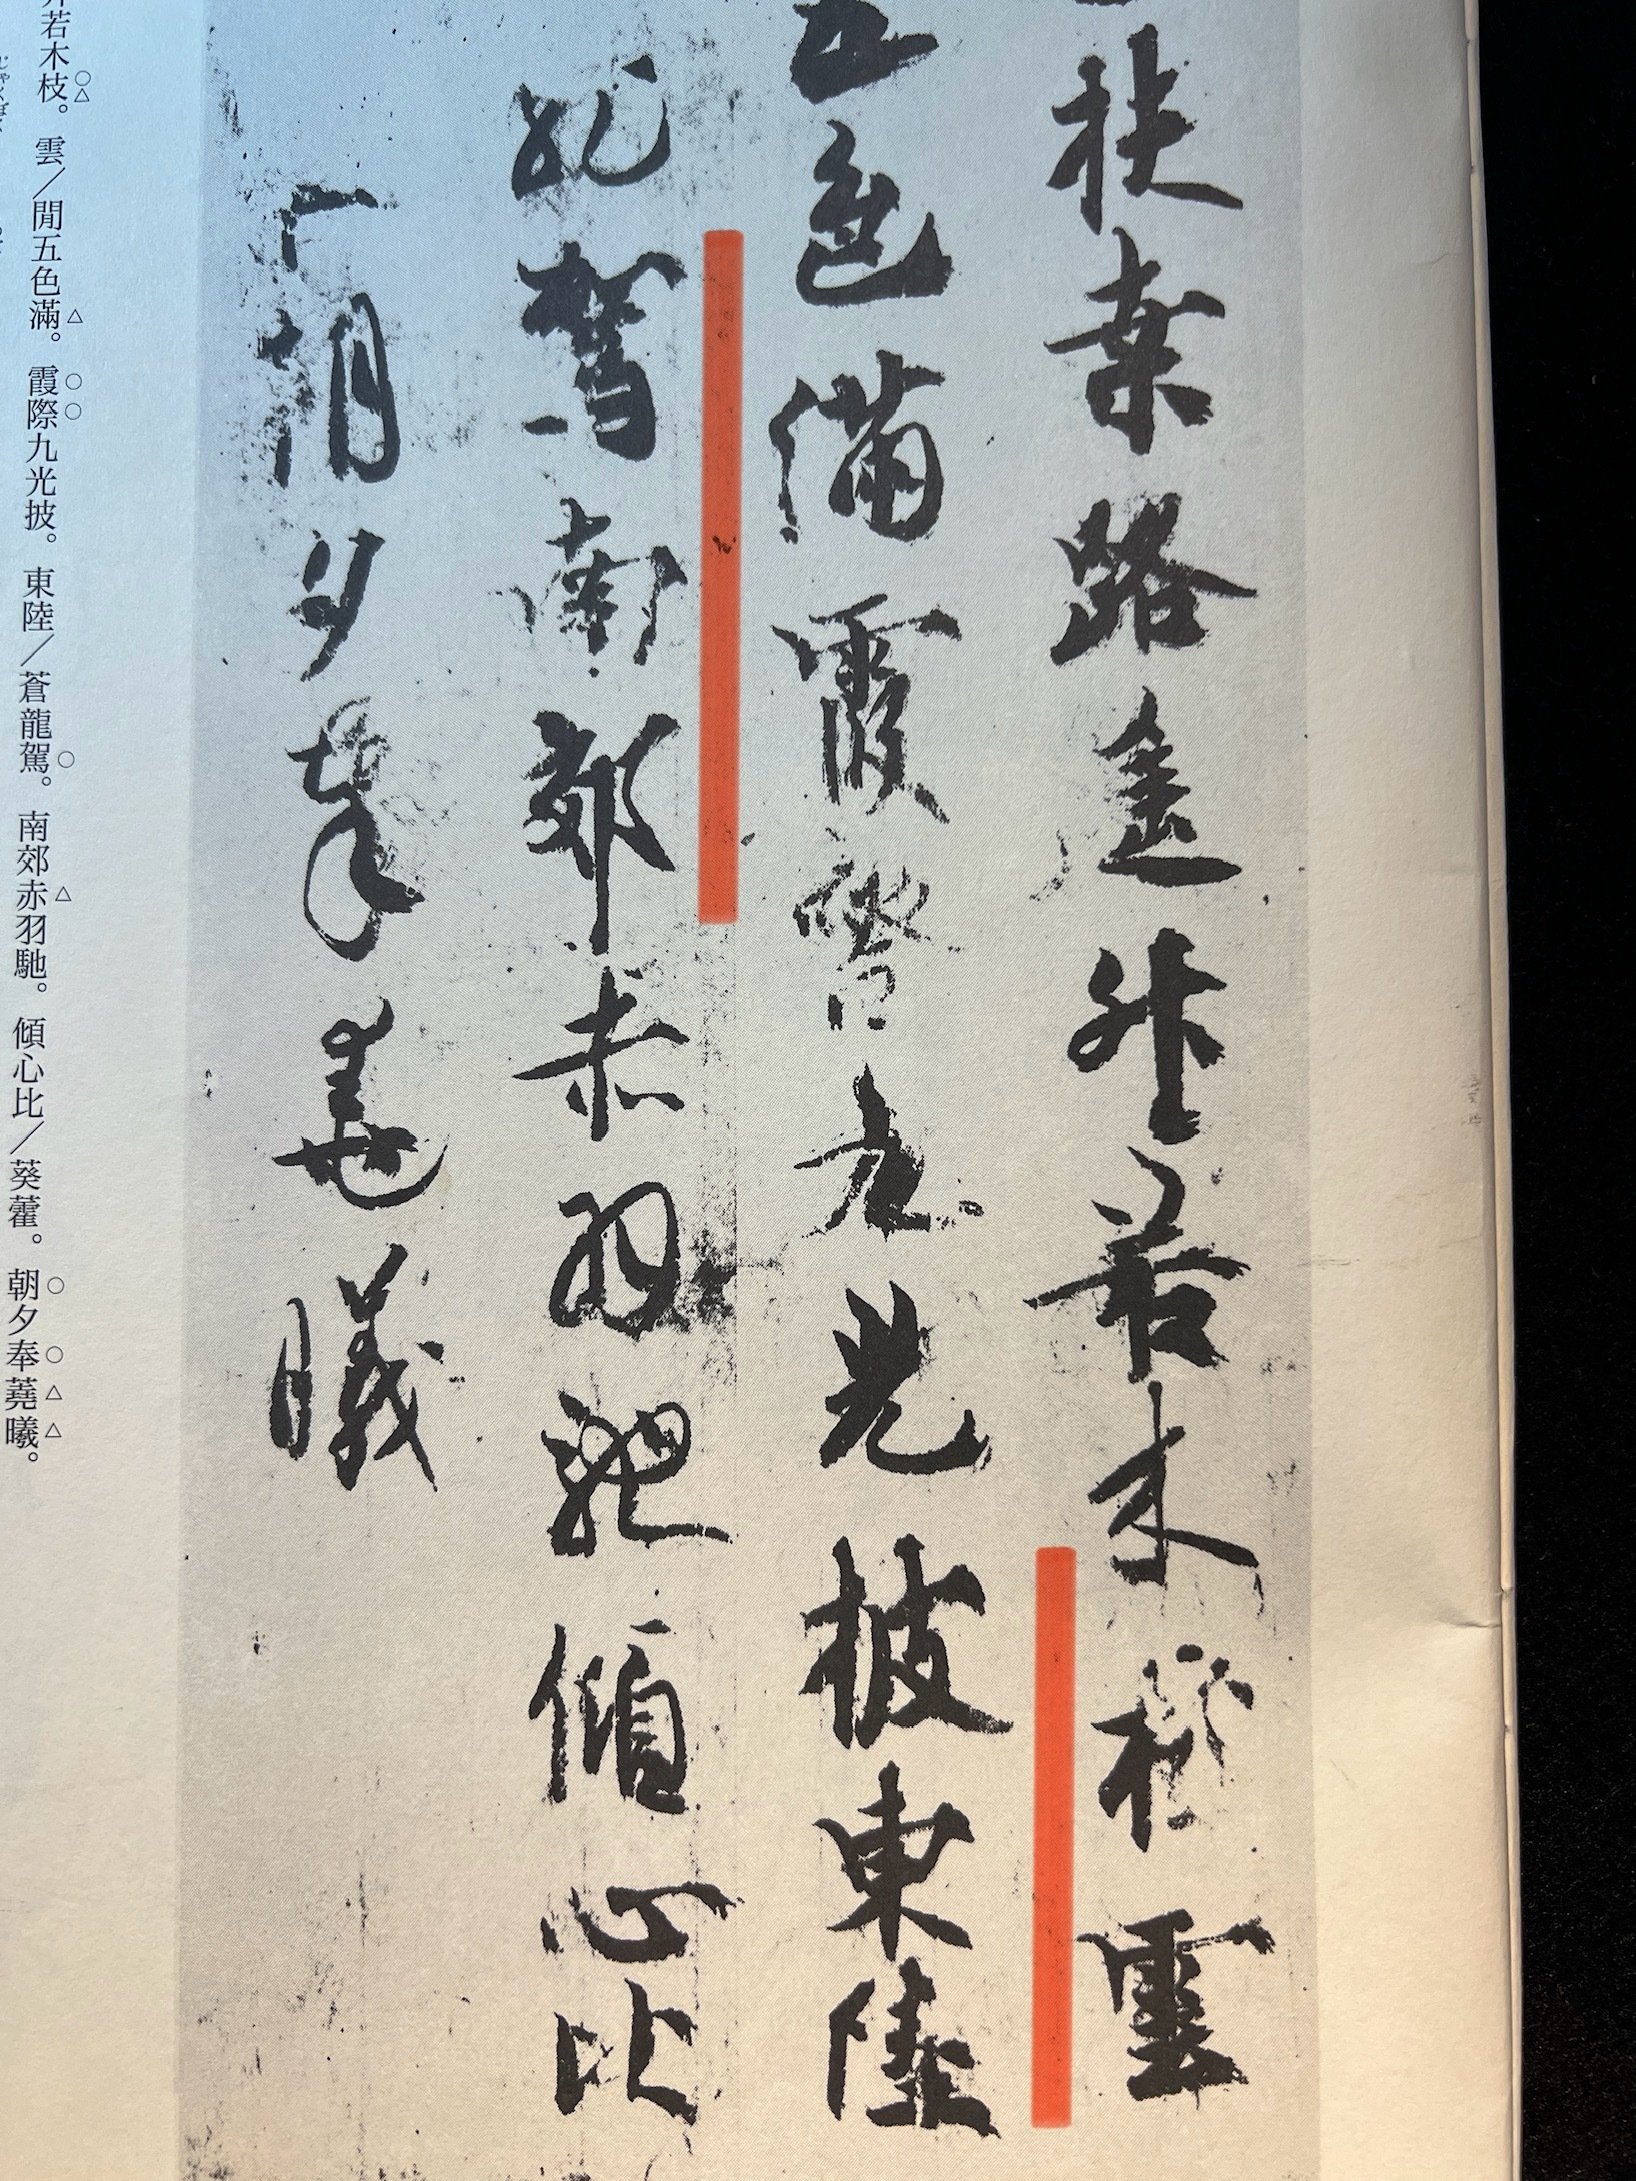 扶桒路遥昇若木枝雲
五色滿霞際九光披東陸
駕南郊赤羽馳傾心比
朝夕奉蕘曦
若木枝。雲／閒五色滿。霞際九光披。東陸／蒼龍駕。南郊赤羽馳。傾心比／葵藿。朝夕奉蕘曦。